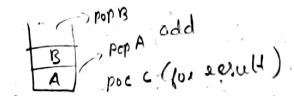 pop B
B pop A add
A poc c (for result)